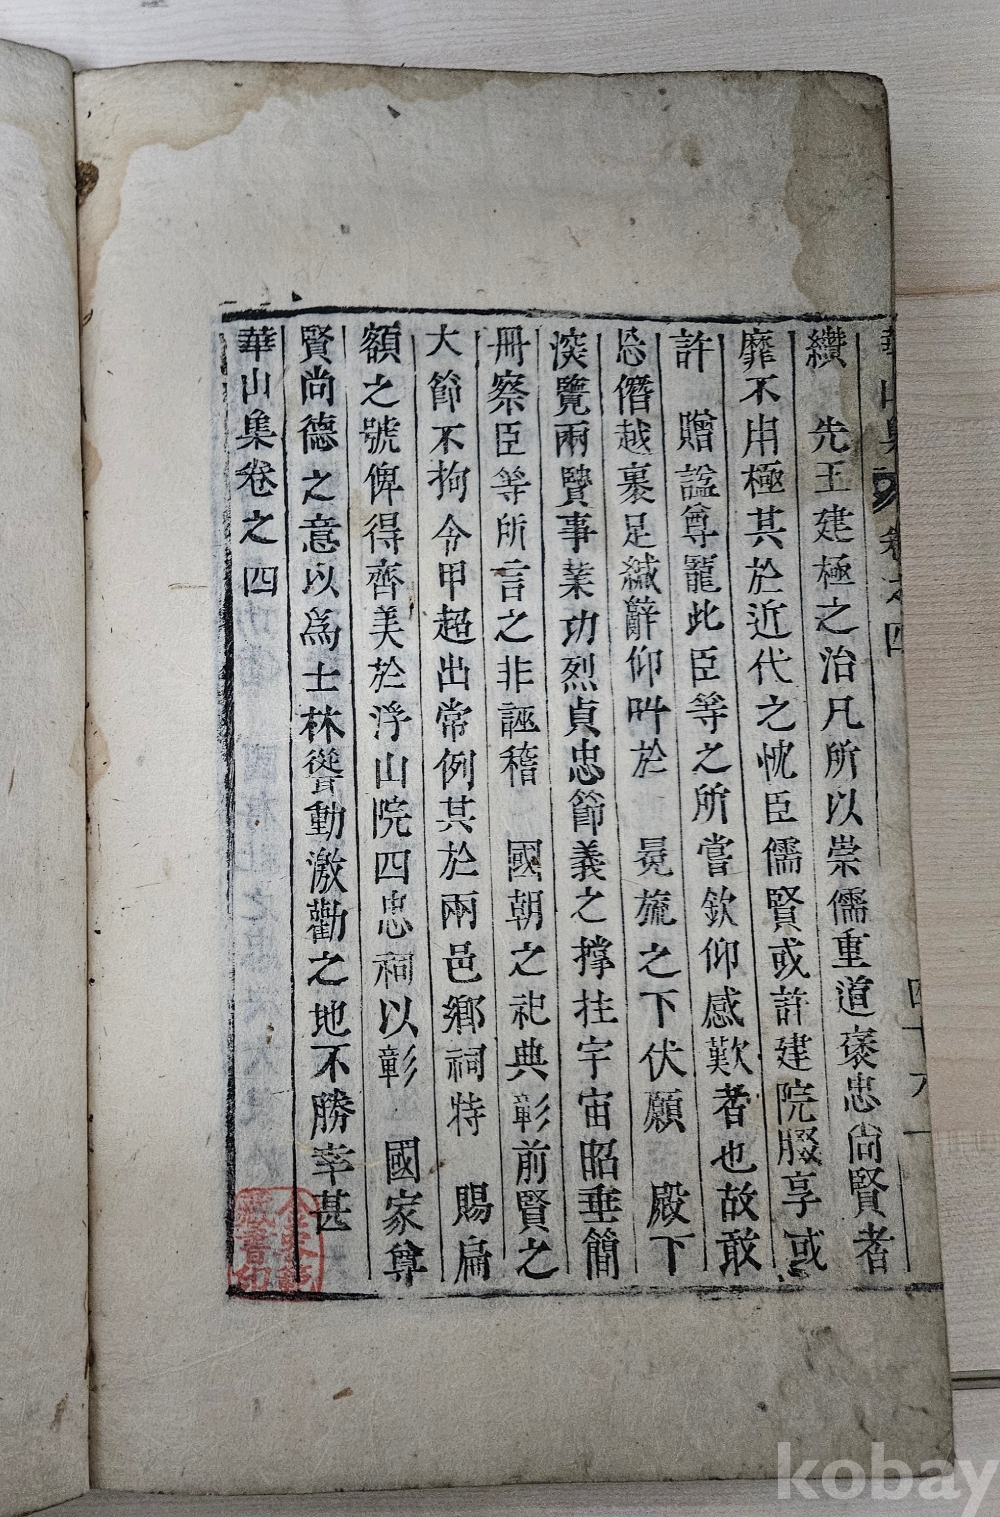 華山集 卷之四 四十六
纘 先王建極之治凡所以崇儒重道褒忠尙賢者
靡不用極其於近代之忱臣儒賢或許建院腏享或
許 贈諡尊寵此臣等之所嘗欽仰感歎者也故敢
忘僭越裹足緘辭仰呌於 冕旒之下伏願 殿下
深覽兩賢事業功烈貞忠節義之撑拄宇宙昭垂簡
冊察臣等所言之非誣稽 國朝之祀典彰前賢之
大節不拘令甲超出常例其於兩邑鄕祠特 賜扁
額之號俾得齊美於浮山院四忠祠以彰 國家尊
賢尚德之意以爲士林聳動激勸之地不勝幸甚
華山集卷之四
藏書印
kobay